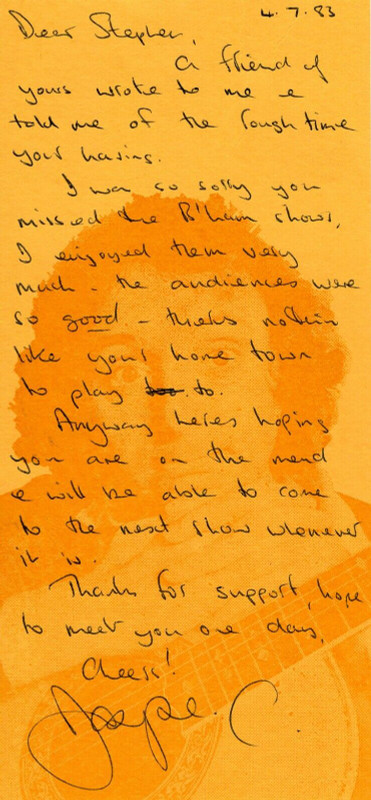 4.7.83
Dear Stephen,
A friend of
yours wrote to me &
told me of the rough time
your having.
I was so sorry you
missed the B'ham shows,
I enjoyed them very
much - the audiences were
so good. - theres nothin
like your home town
to play too. to.
Anyway heres hoping
you are on the mend
& will be able to come
to the next show whenever
it is.
Thanks for support, hope
to meet you one day,
Cheers!
Jasper C